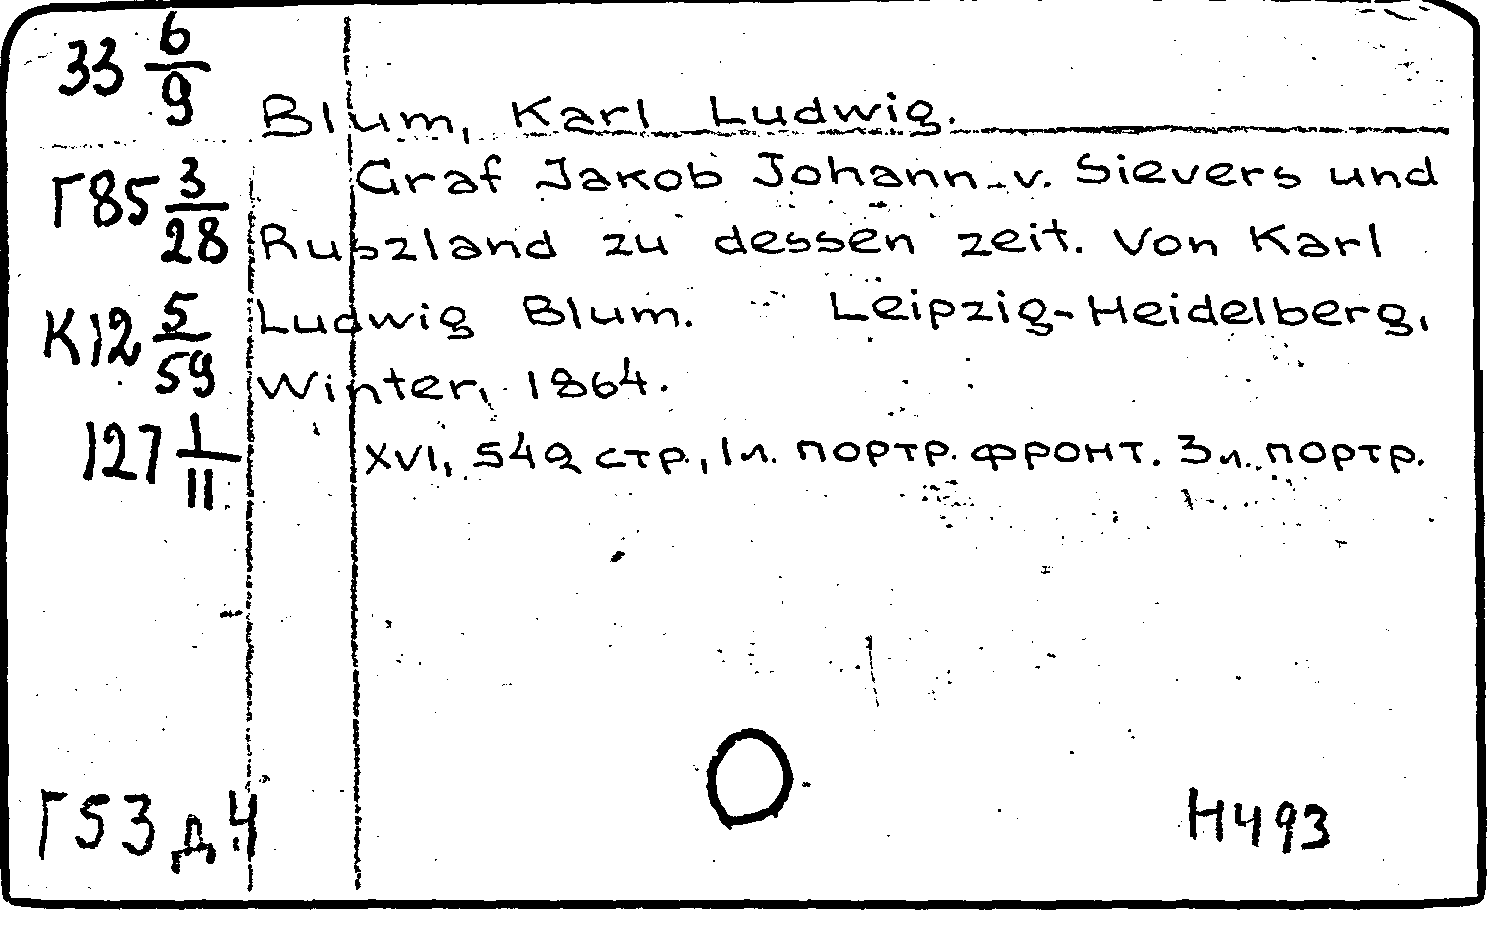 33 6/9
Blum, Karl Ludwig.
Г85 3/28
Graf Jakob Johann v. Sievers und
Ruszland zu dessen zeit. Von Karl
К12 5/59
Ludwig Blum. Leipzig-Heidelberg,
Winter, 1864.
127 I/II
XVI, 542 стр., 1 л. портр. фронт. 3 л. портр.
Г53 д.4
Н493